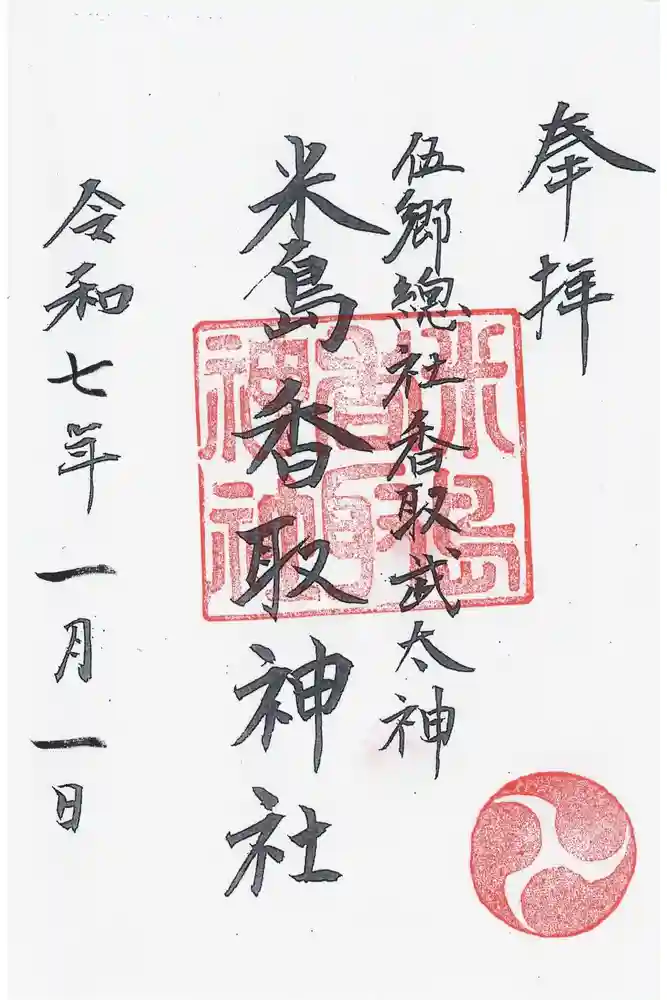 奉拝
伍郷總社香取武太神
米島香取神社
米島
香取
神社
令和七年一月一日